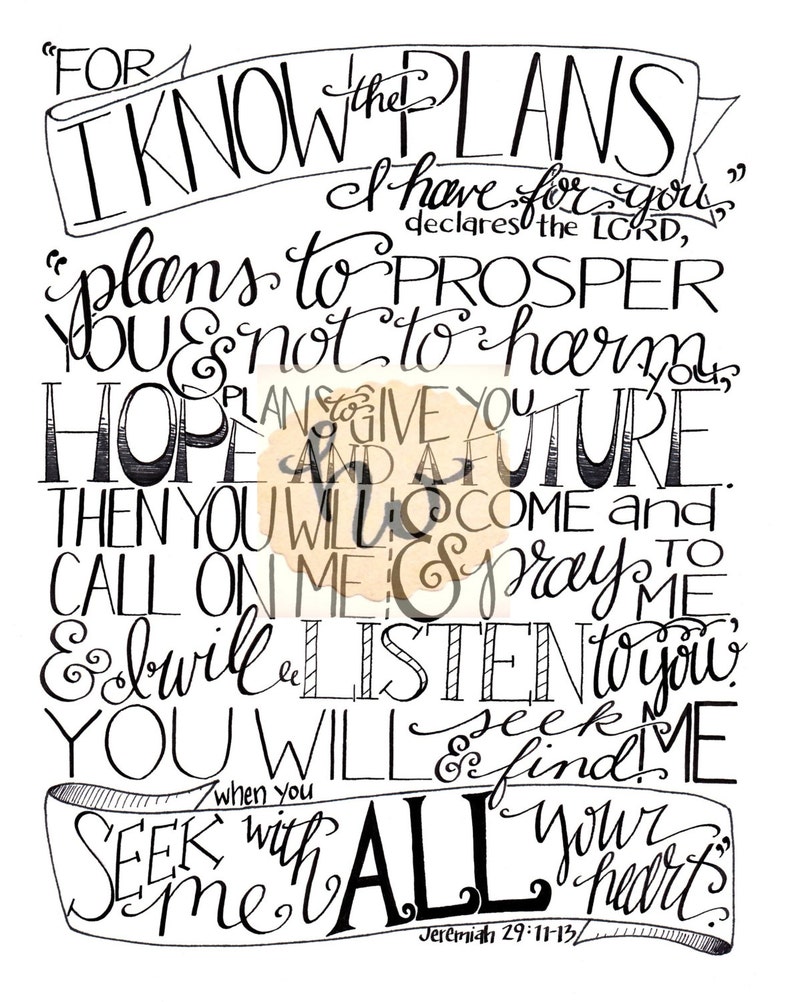 “FOR
I KNOW the PLANS
I have for you,”
declares the LORD,
“plans to PROSPER
YOU & not to harm you,
PLANS to GIVE YOU
HOPE AND A FUTURE.
THEN YOU WILL COME and
CALL ON ME & pray TO ME
& I will LISTEN to you.
YOU WILL seek & find ME
when you
SEEK me with ALL your heart.”
Jeremiah 29:11-13